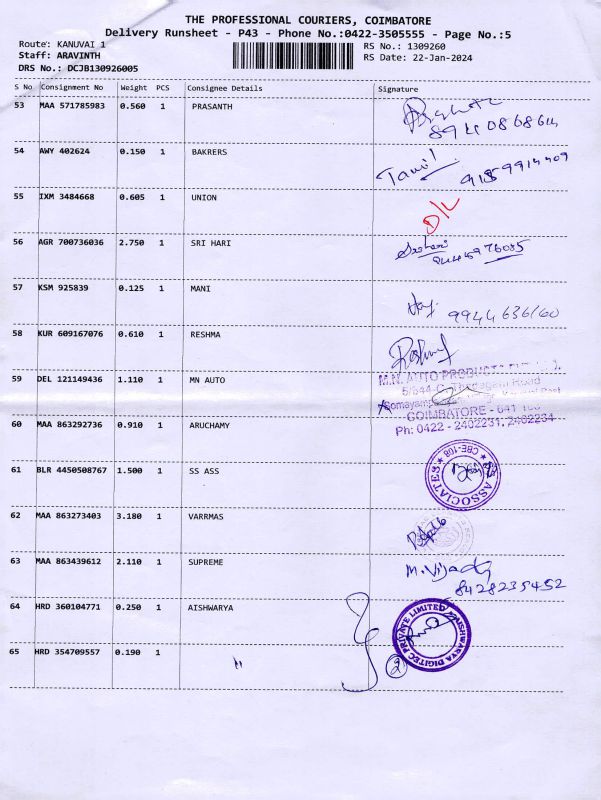 THE PROFESSIONAL COURIERS, COIMBATORE
Delivery Runsheet - P43 - Phone No.:0422-3505555 - Page No.:5
Route: KANUVAI 1
Staff: ARAVINTH
DRS No.: DCJB130926005
RS No.: 1309260
RS Date: 22-Jan-2024
S No Consignment No Weight PCS Consignee Details Signature
53 MAA 571785983 0.560 1 PRASANTH
54 AWY 402624 0.150 1 BAKRERS Tamil
55 IXM 3484668 0.605 1 UNION D/L
56 AGR 700736036 2.750 1 SRI HARI Srihari
57 KSM 925839 0.125 1 MANI 9944636160
58 KUR 609167076 0.610 1 RESHMA
59 DEL 121149436 1.110 1 MN AUTO M.N. AUTO PRODUCTS
5/344-C, Thadagam Road
Somayampalayam
COIMBATORE - 641 108
Ph: 0422 - 2402231, 2402234
60 MAA 863292736 0.910 1 ARUCHAMY
61 BLR 4450508767 1.500 1 SS ASS ASSOCIATES ★ CBE-108 ★
62 MAA 863273403 3.180 1 VARRMAS
63 MAA 863439612 2.110 1 SUPREME M. Vijay
8428235452
64 HRD 360104771 0.250 1 AISHWARYA AISHWARYA DIGITEC PRIVATE LIMITED
65 HRD 354709557 0.190 1 " 2